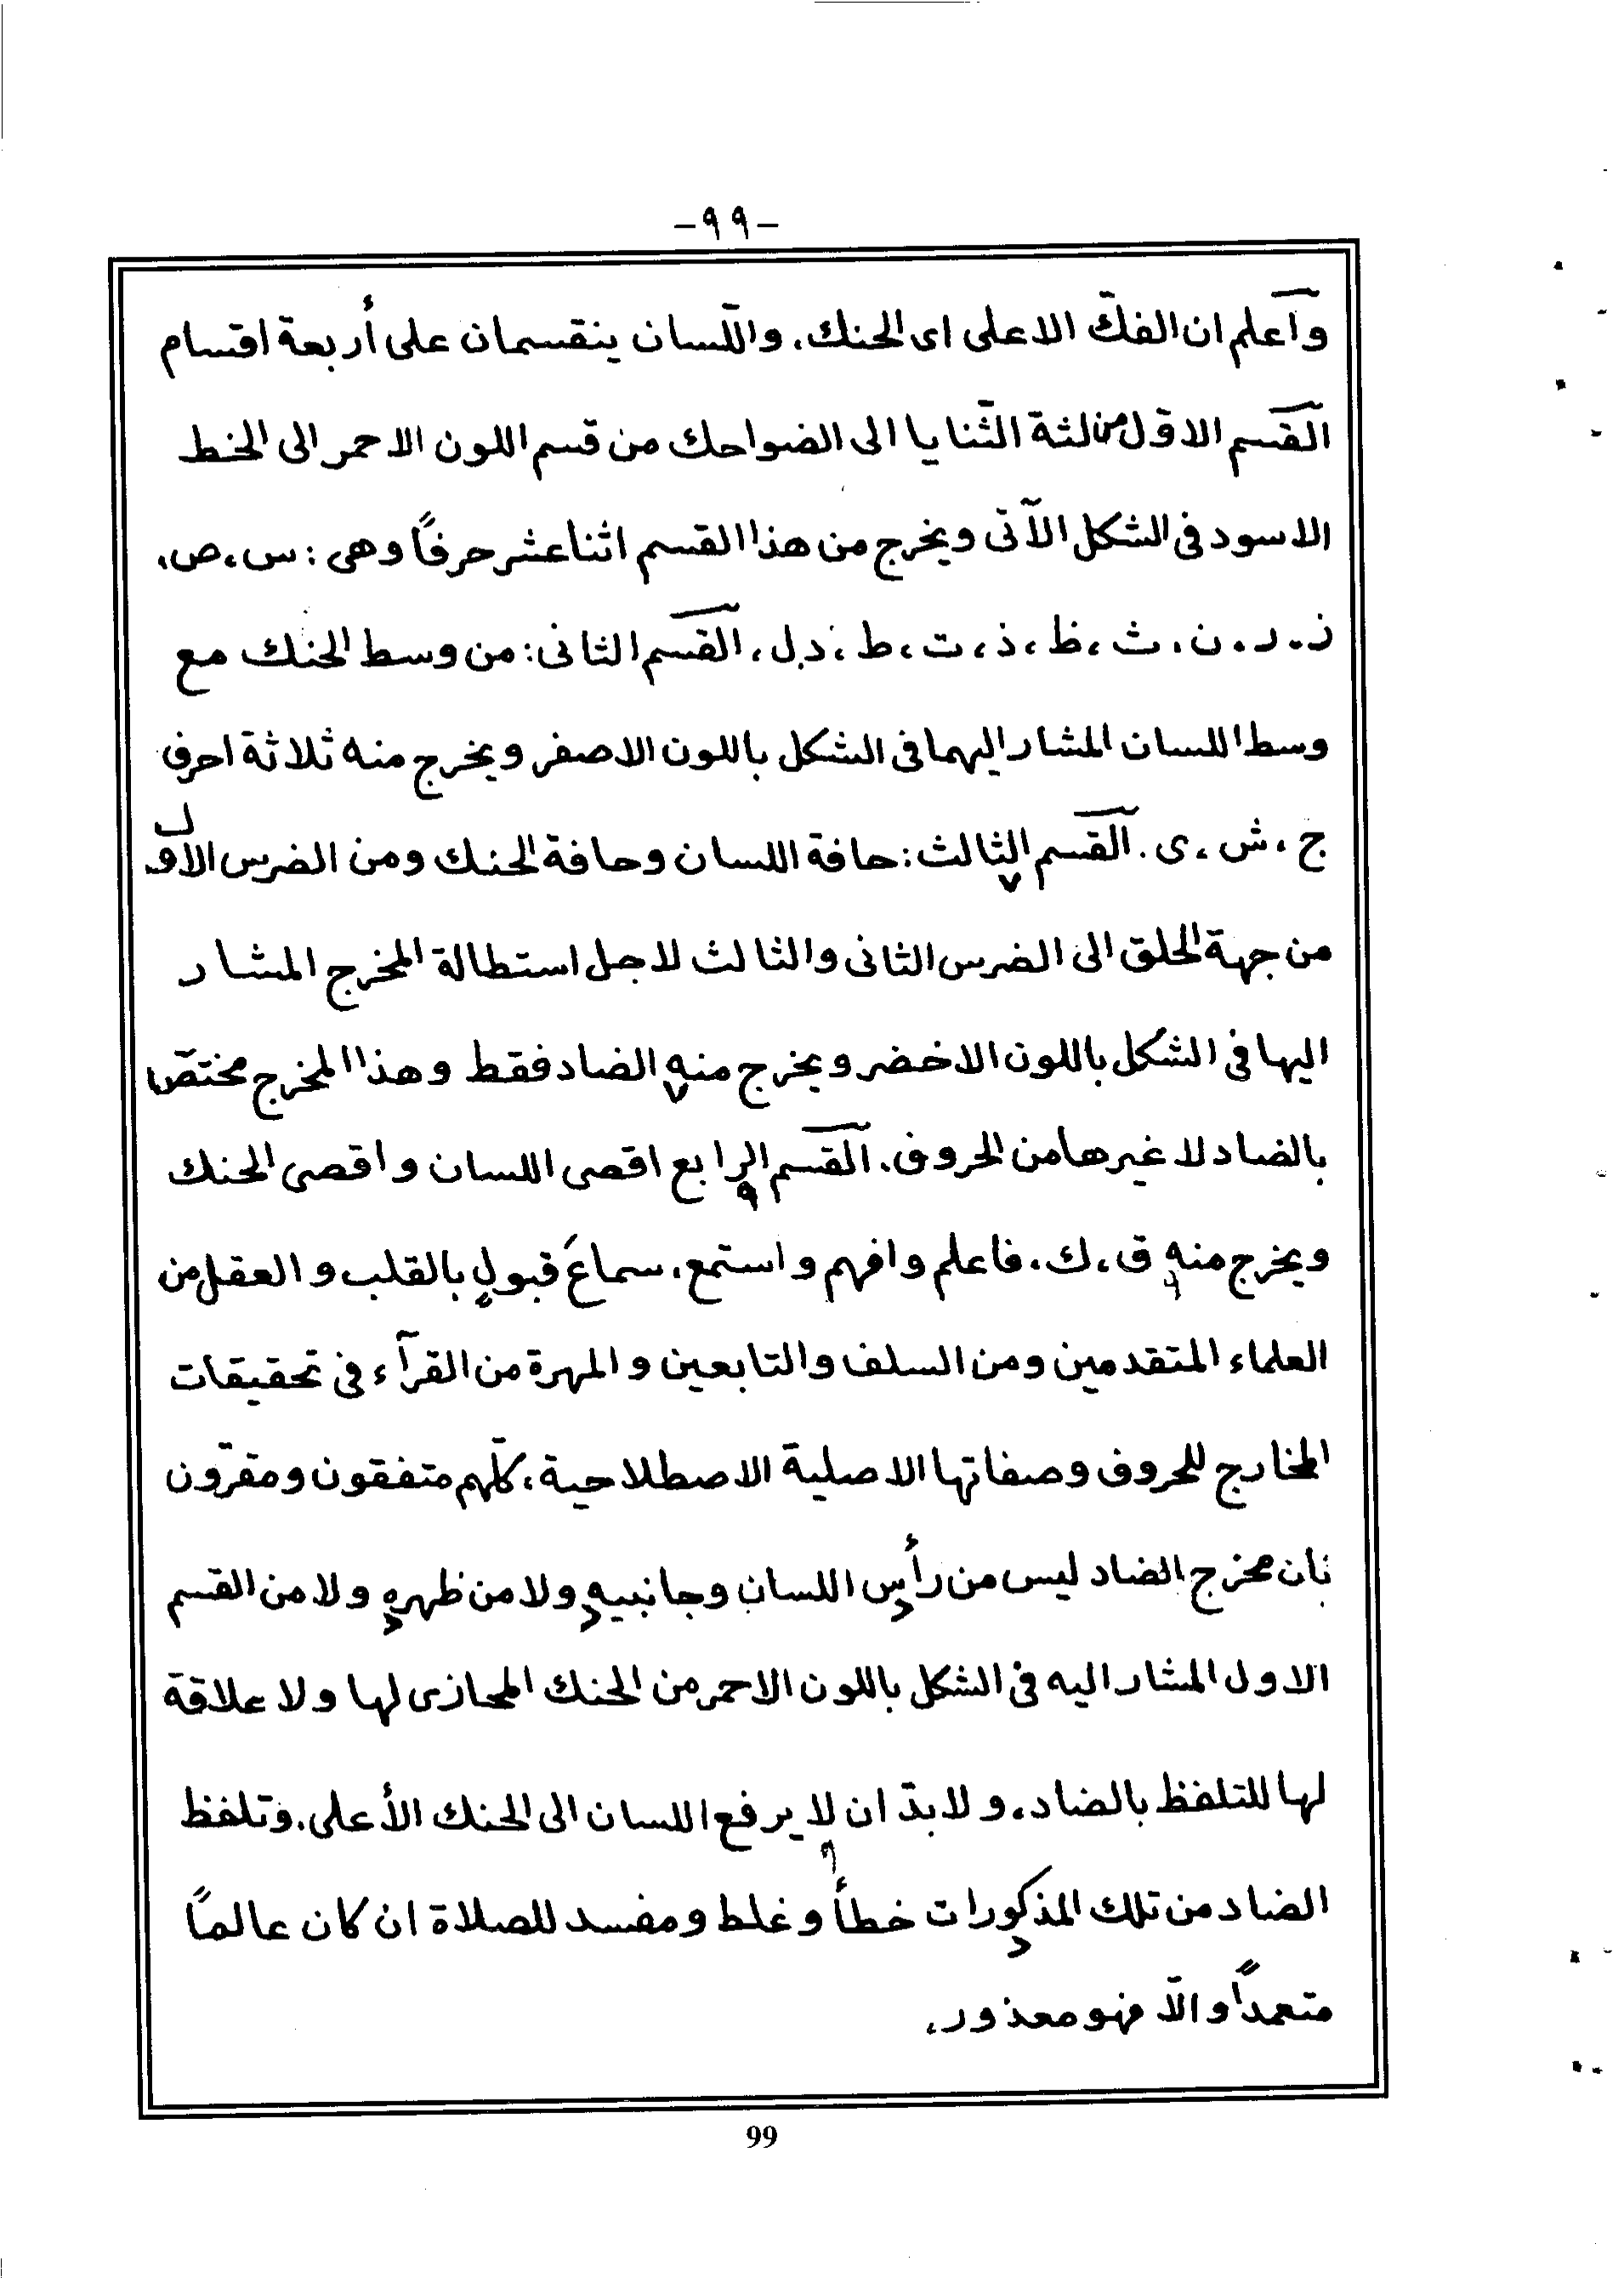 -٩٩-
وٱعلم ان الفكّ الاعلى اى الحنك، واللّسان ينقسمان على أربعة اقسام
القسم الاوّل من لثة الثّنايا الى الضواحك من قسم اللون الاحمر الى الخط
الاسود فى الشكل الآتى ويخرج من هذا القسم اثنا عشر حرفًا وهى : س، ص،
ز، ر، ن، ث، ظ، ذ، ت، ط، د، ل، القسم الثانى: من وسط الحنك مع
وسط اللسان المشار اليهما فى الشكل باللون الاصفر ويخرج منه ثلاثة احرف
ج، ش، ى. القسم الثالث: حافة اللسان وحافة الحنك ومن الضرس الاول
من جهة الحلق الى الضرس الثانى والثالث لاجل استطالة المخرج المشار
اليها فى الشكل باللون الاخضر ويخرج منه الضاد فقط وهذا المخرج مختصّ
بالضاد لا غيرها من الحروف، القسم الرابع اقصى اللسان و اقصى الحنك
ويخرج منه ق، ك، فاعلم وافهم واستمع، سماعَ قبولٍ بالقلب و العقل من
العلماء المتقدمين ومن السلف والتابعين و المهرة من القرآء فى تحقيقات
المخارج للحروف وصفاتها الاصلية الاصطلاحية، كلّهم متفقون ومقرّون
بان مخرج الضاد ليس من رأسِ اللسان وجانبيهِ ولا من ظهرهِ ولا من القسم
الاول المشار اليه فى الشكل باللون الاحمر من الحنك المحازى لها ولا علاقة
لها للتلفظ بالضاد، و لابدّ ان لا يرفع اللسان الى الحنك الأعلى. وتلفظ
الضاد من تلك المذكورات خطأ وغلط ومفسد للصلاة ان كان عالمًا
متعمدًا والاّ فهو معذور،
99